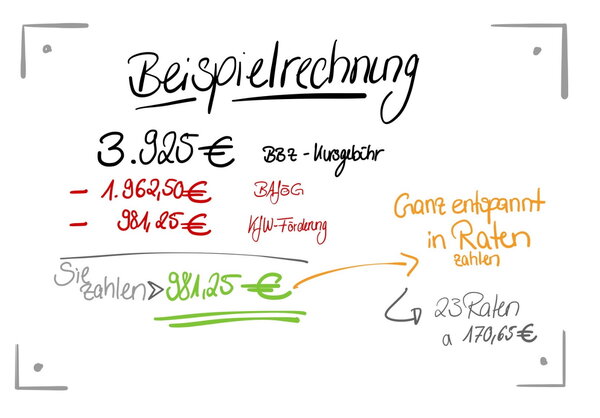 Beispielrechnung
3.925 € BBZ - Kursgebühr
- 1.962,50 € BAföG
- 981,25 € KfW-Förderung
Sie zahlen > 981,25 €
Ganz entspannt
in Raten
zahlen
23 Raten
a 170,65 €